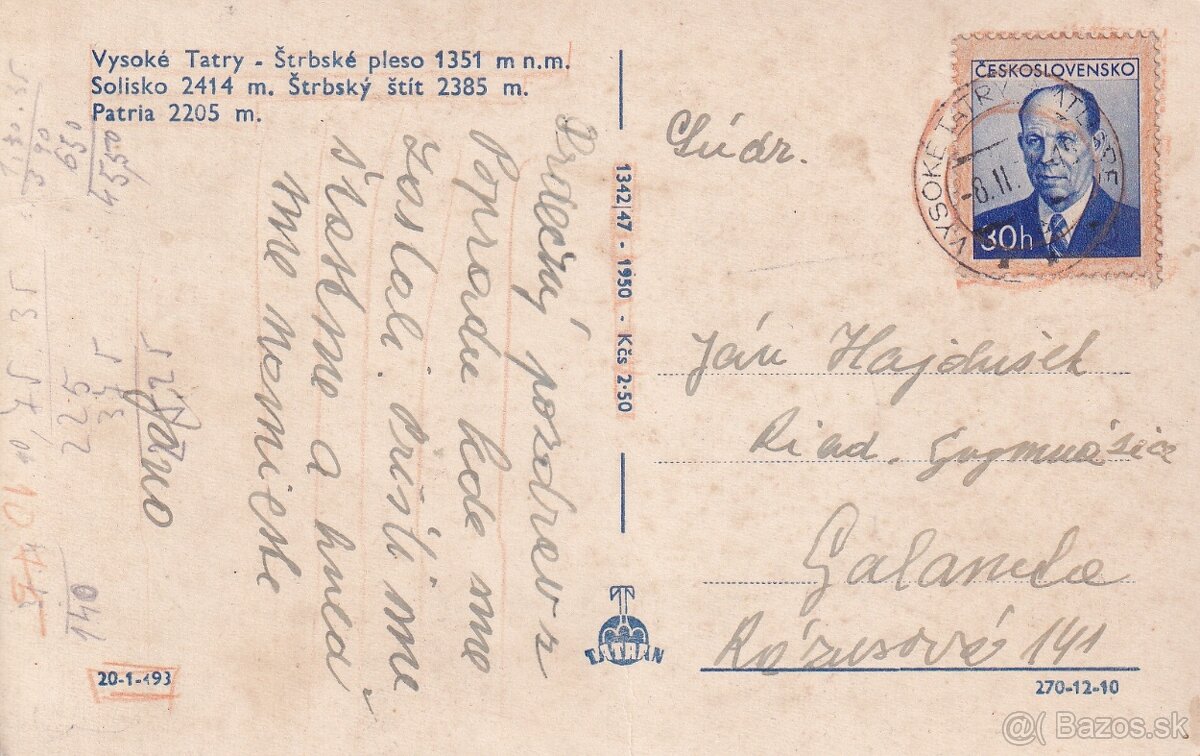 Vysoké Tatry - Štrbské pleso 1351 m n.m.
Solisko 2414 m. Štrbský štít 2385 m.
Patria 2205 m.
Srdečný pozdrav z
Popradu kde sme
zostali. Prišli sme
šťastne a hneď
sme
Jano
20-1-493
1342/47 - 1950 - Kčs 2·50
TATRAN
ČESKOSLOVENSKO
30h
VYSOKÉ TATRY
-8.II.
Súdr.
Ján Hajdušek
Riad. Gymnázia
Galanda
Rázusová 141
270-12-10
225
140
4550
@( Bazos.sk